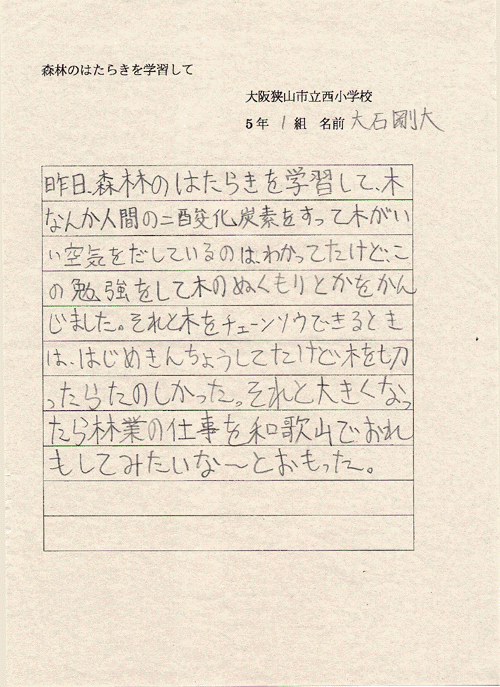 森林のはたらきを学習して
大阪狭山市立西小学校
5年 1組 名前 大石剛大
昨日、森林のはたらきを学習して、木
なんか人間の二酸化炭素をすって木がい
い空気をだしているのは、わかってたけど、こ
の勉強をして木のぬくもりとかをかん
じました。それと木をチェーンソウできるとき
は、はじめきんちょうしてたけど木を切
ったらたのしかった。それと大きくなっ
たら林業の仕事を和歌山でおれ
もしてみたいな〜とおもった。